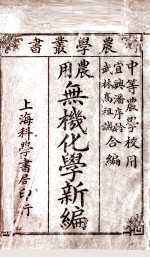 農學叢書
中等農學校用
宜興潘序倫
武林高祖誠
合編
農用
無機化學新編
上海科學書局印行